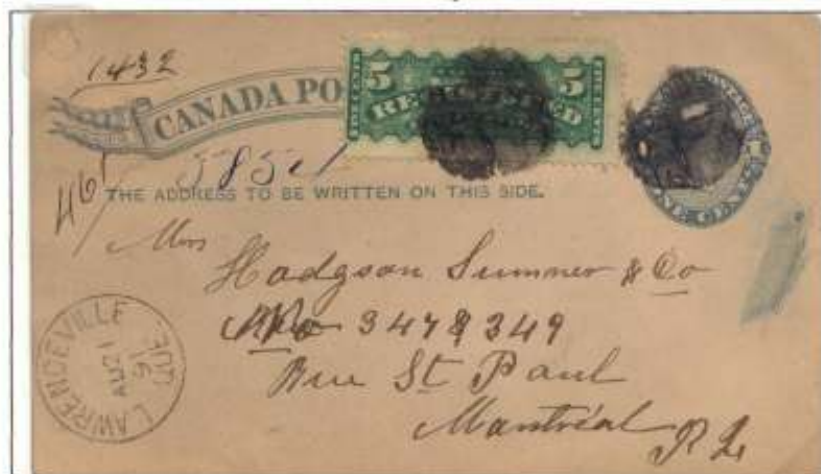 1432
CANADA PO
5 REGISTERED 5
461
5851
THE ADDRESS TO BE WRITTEN ON THIS SIDE.
Mrs
Hodgson Sumner & Co
347 & 349
Rue St Paul
Montréal
P Q
LAWRENCEVILLE QUE
AU 21
91